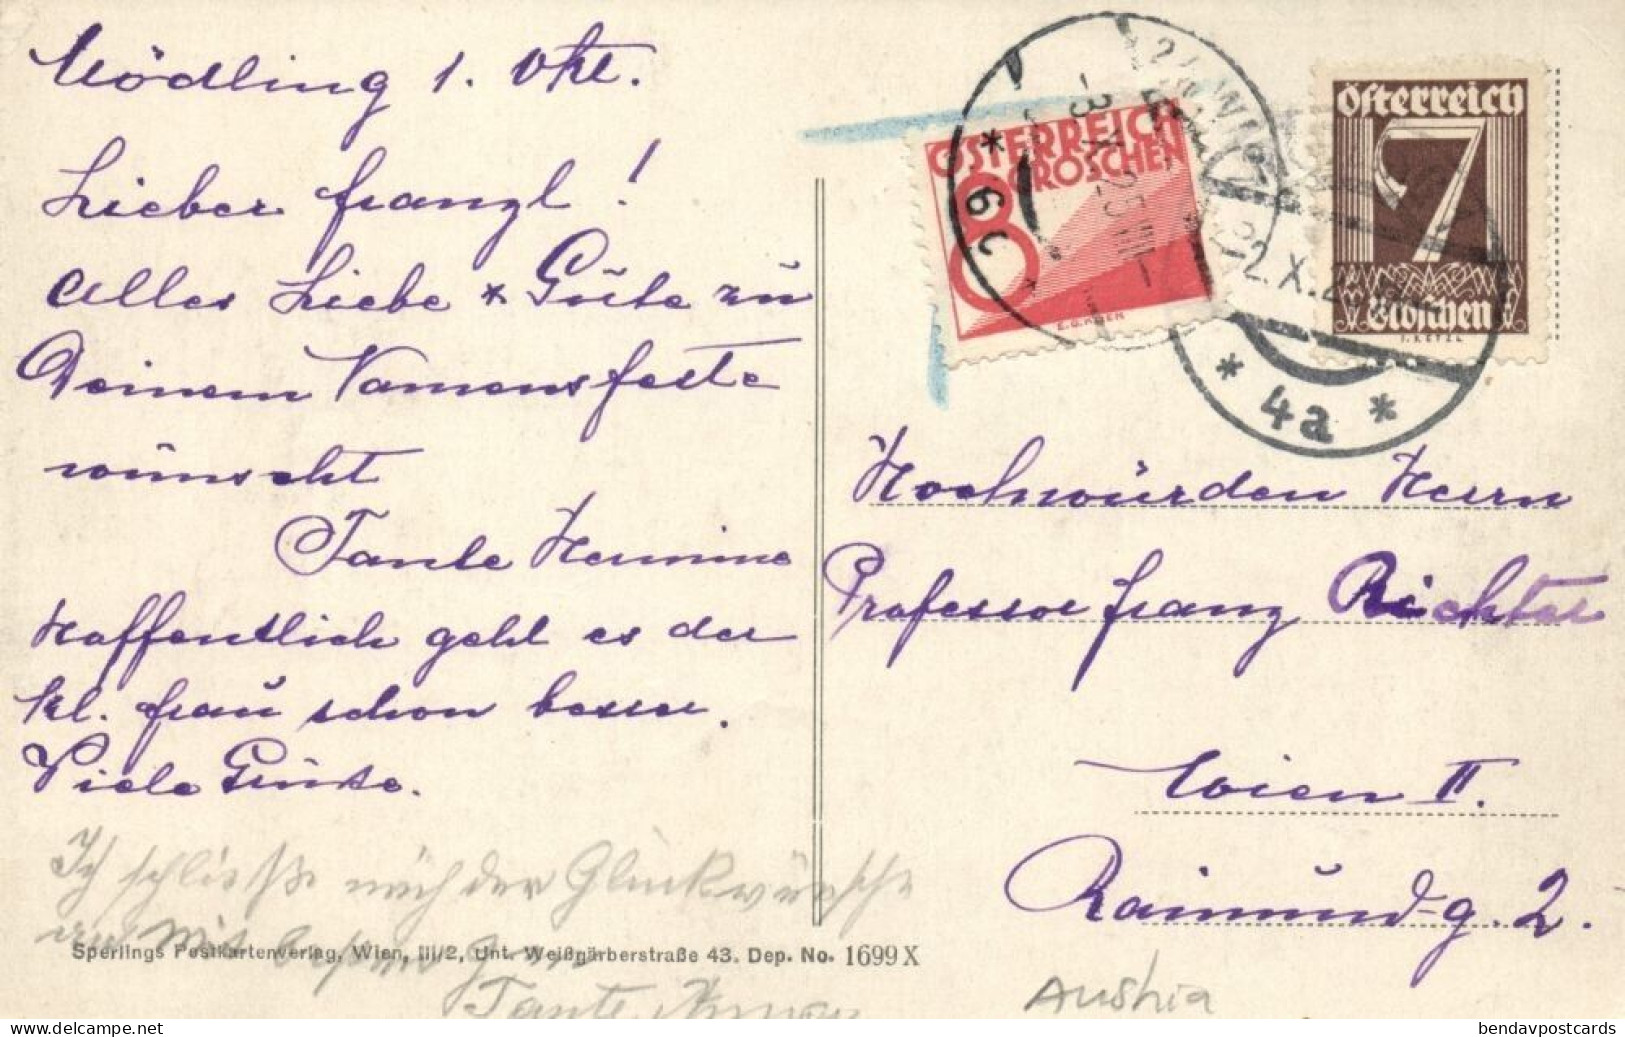 Mödling 1. Okt.
Lieber Franzl!
Alles Liebe & Gute zu
Deinem Namensfeste
wünscht
Tante Hermine
Hoffentlich geht es der
kl. Frau schon besser.
Viele Grüße.
Ich schließe mich der Glückwünsche
an Mit besten
Tante
Sperlings Postkartenverlag, Wien, III/2, Unt. Weißgärberstraße 43. Dep. No. 1699 X
ÖSTERREICH
8 GROSCHEN
* 6c
-3.X.25 VIII-
WIEN
Österreich
7
Groschen
* 4a *
Hochwürden Herrn
Professor Franz Richter
Wien II.
Raimund-g. 2.
Austria
delcampe.net
bendavpostcards